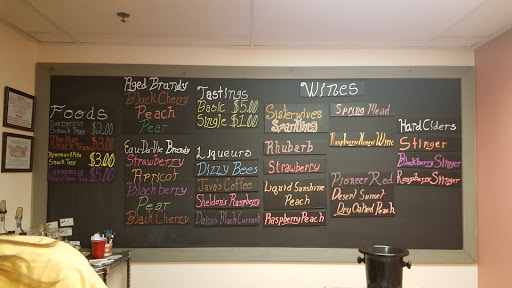 Foods
Snack Tray $2.00
Snack Tray $3.00
$3.00
$5.00
Aged Brandy
Black Cherry
Peach
Pear
Eau-Da-Vie Brandy
Strawberry
Apricot
Blackberry
Pear
Black Cherry
Tastings
Basic $5.00
Single $1.00
Liqueurs
Dizzy Bees
Javos Coffee
Sheldon's Raspberry
Black Currant
Wines
Sisterwives
Sparkling
Rhubarb
Strawberry
Liquid Sunshine
Peach
Raspberry Peach
Spring Mead
Raspberry Honey Wine
Pioneer Red
Desert Sunset
Dry Oaked Peach
Hard Ciders
Stinger
Blackberry Stinger
Raspberry Stinger